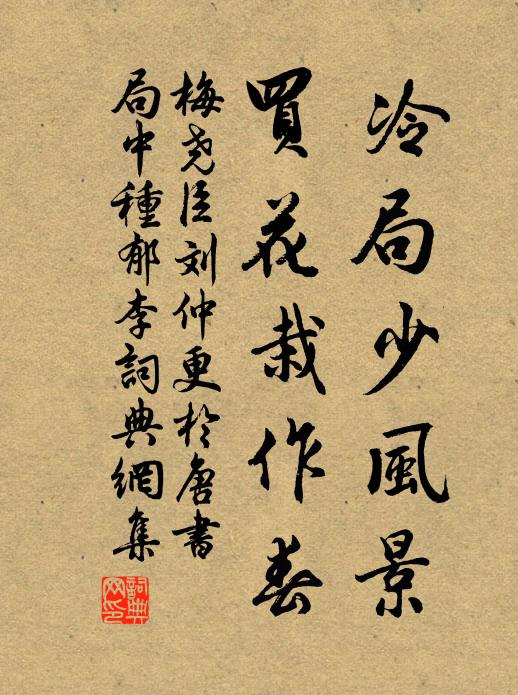 冷局少風景
買花栽作春
梅尧臣刘仲更於唐書
局中種郁李詞典網集
詞典
网印